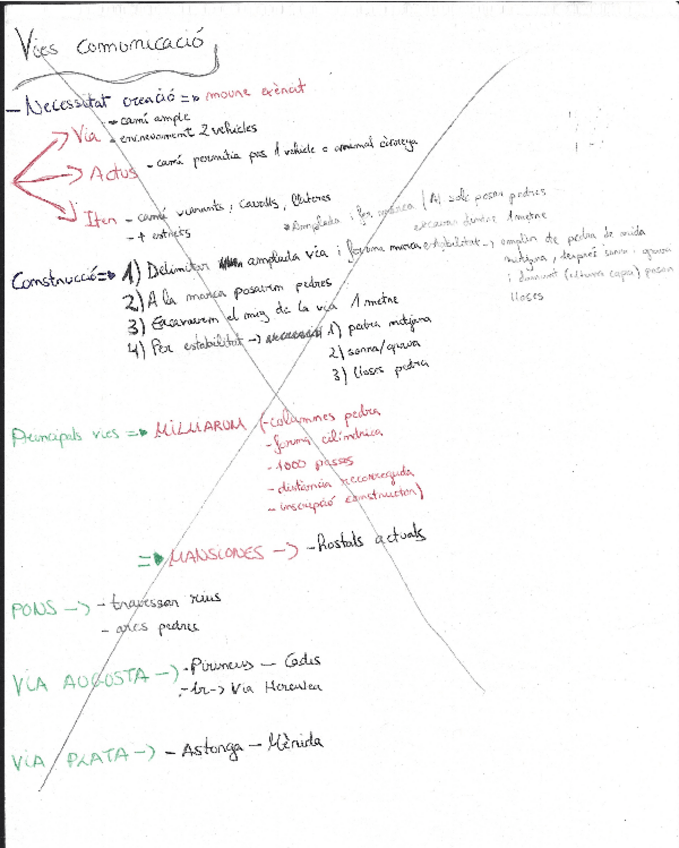 Vies comunicació
- Necessitat creació => moure exèrcit
Via - camí ample
- encreuament 2 vehicles
Actus - camí permitia pas 1 vehicle o animal càrrega
Iter - camí vianants, cavalls, lliteres
- + estrets
Amplada i fer marca (Al solc posar pedres
excavar dintre 1 metre
Construcció => 1) Delimitar amplada via i fer una marca
estabilitat -> omplir de pedra de mida
mitjana, després sorra i grava
i damunt (última capa) posar
lloses
2) A la marca posarem pedres
3) Excavarem el mig de la via 1 metre
4) Per estabilitat -> 1) pedra mitjana
2) sorra/grava
3) lloses pedra
Principals vies => MILLIARUM (-columnes pedra
- forma cilíndrica
- 1000 passes
- distància recorreguda
- inscripció constructor)
=> MANSIONES -> - Hostals actuals
PONS -> - travessar rius
- arcs pedres
VIA AUGUSTA -> - Pirineus - Cadis
- 1r -> Via Herculea
VIA PLATA -> - Astorga - Mèrida